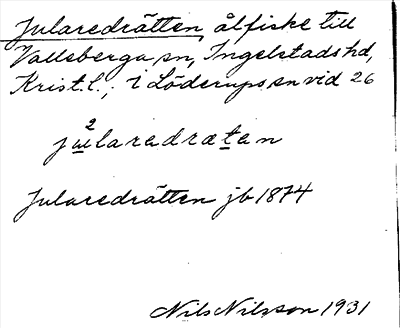 Jularedrätten, ålfiske till
Valleberga sn, Ingelstads hd,
Krist. l., i Löderups sn vid 26
2
jularedrætan
Jularedrätten jb 1874
Nils Nilsson 1931